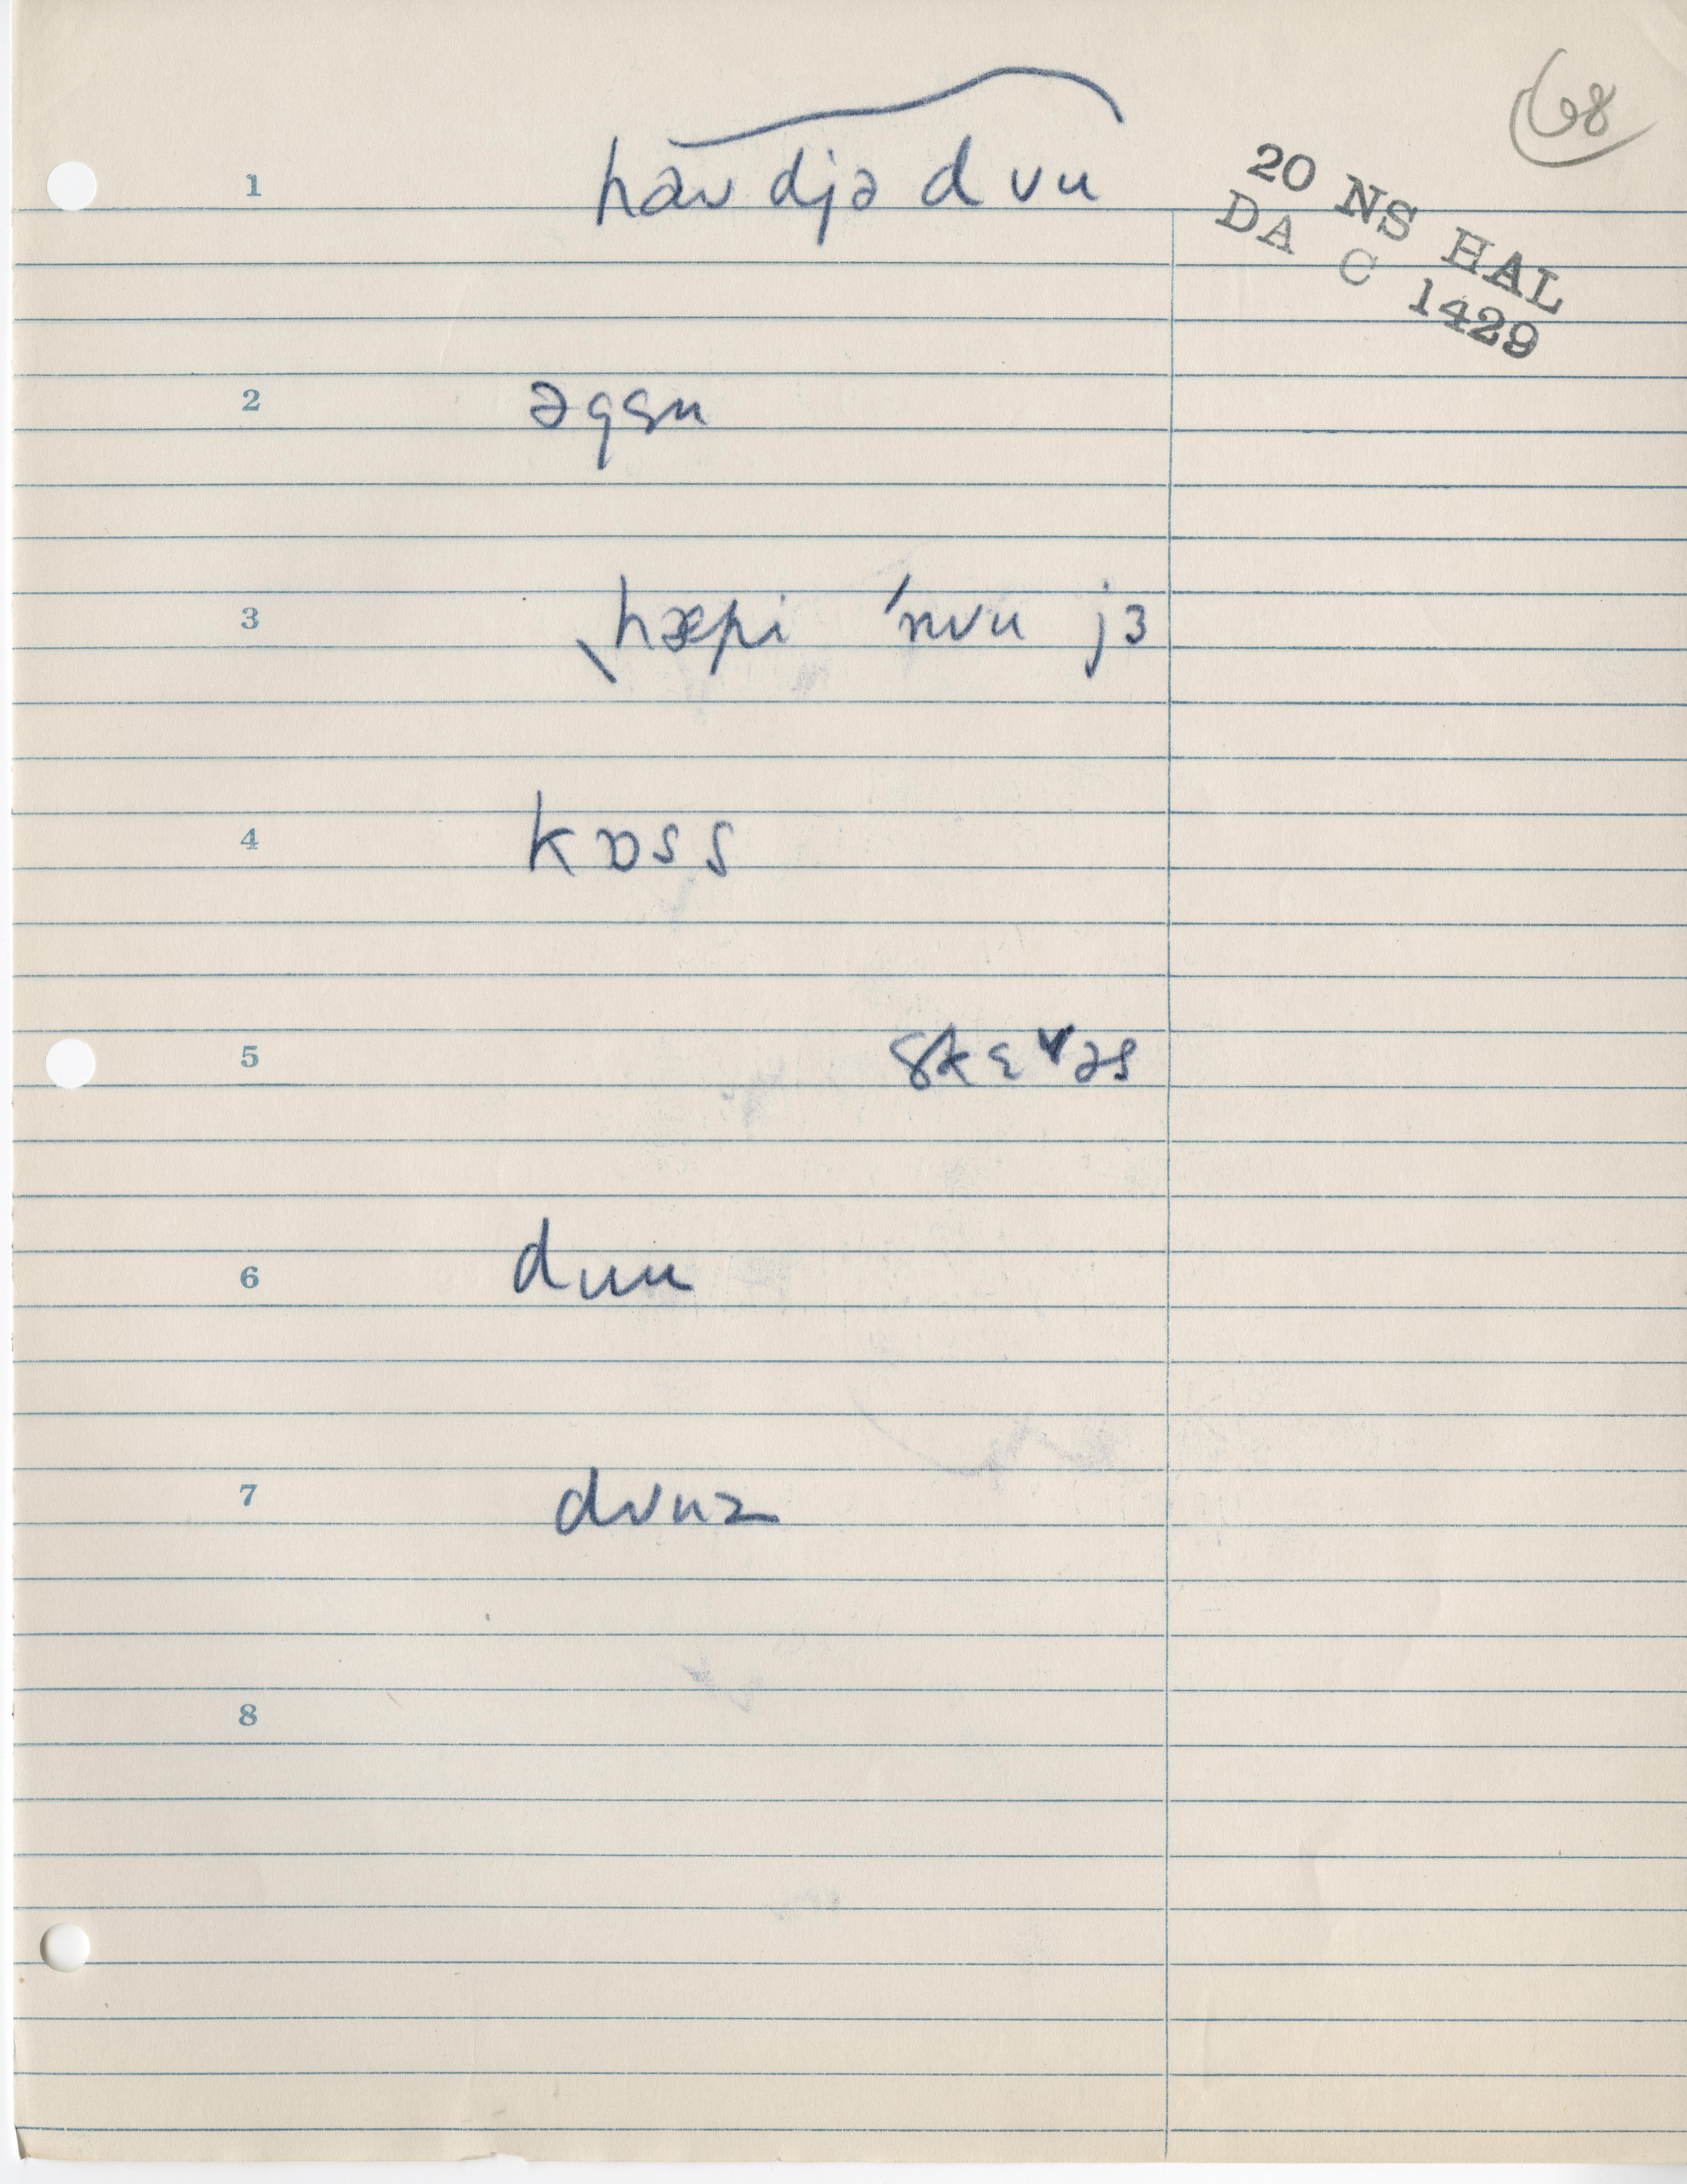 68
20 NS HAL
DA C 1429
1 haʋ djə d ʋu
2
3 hæpi 'nʋu jɜ
4 kɒss
5
6 duu
7 dʋuz
8